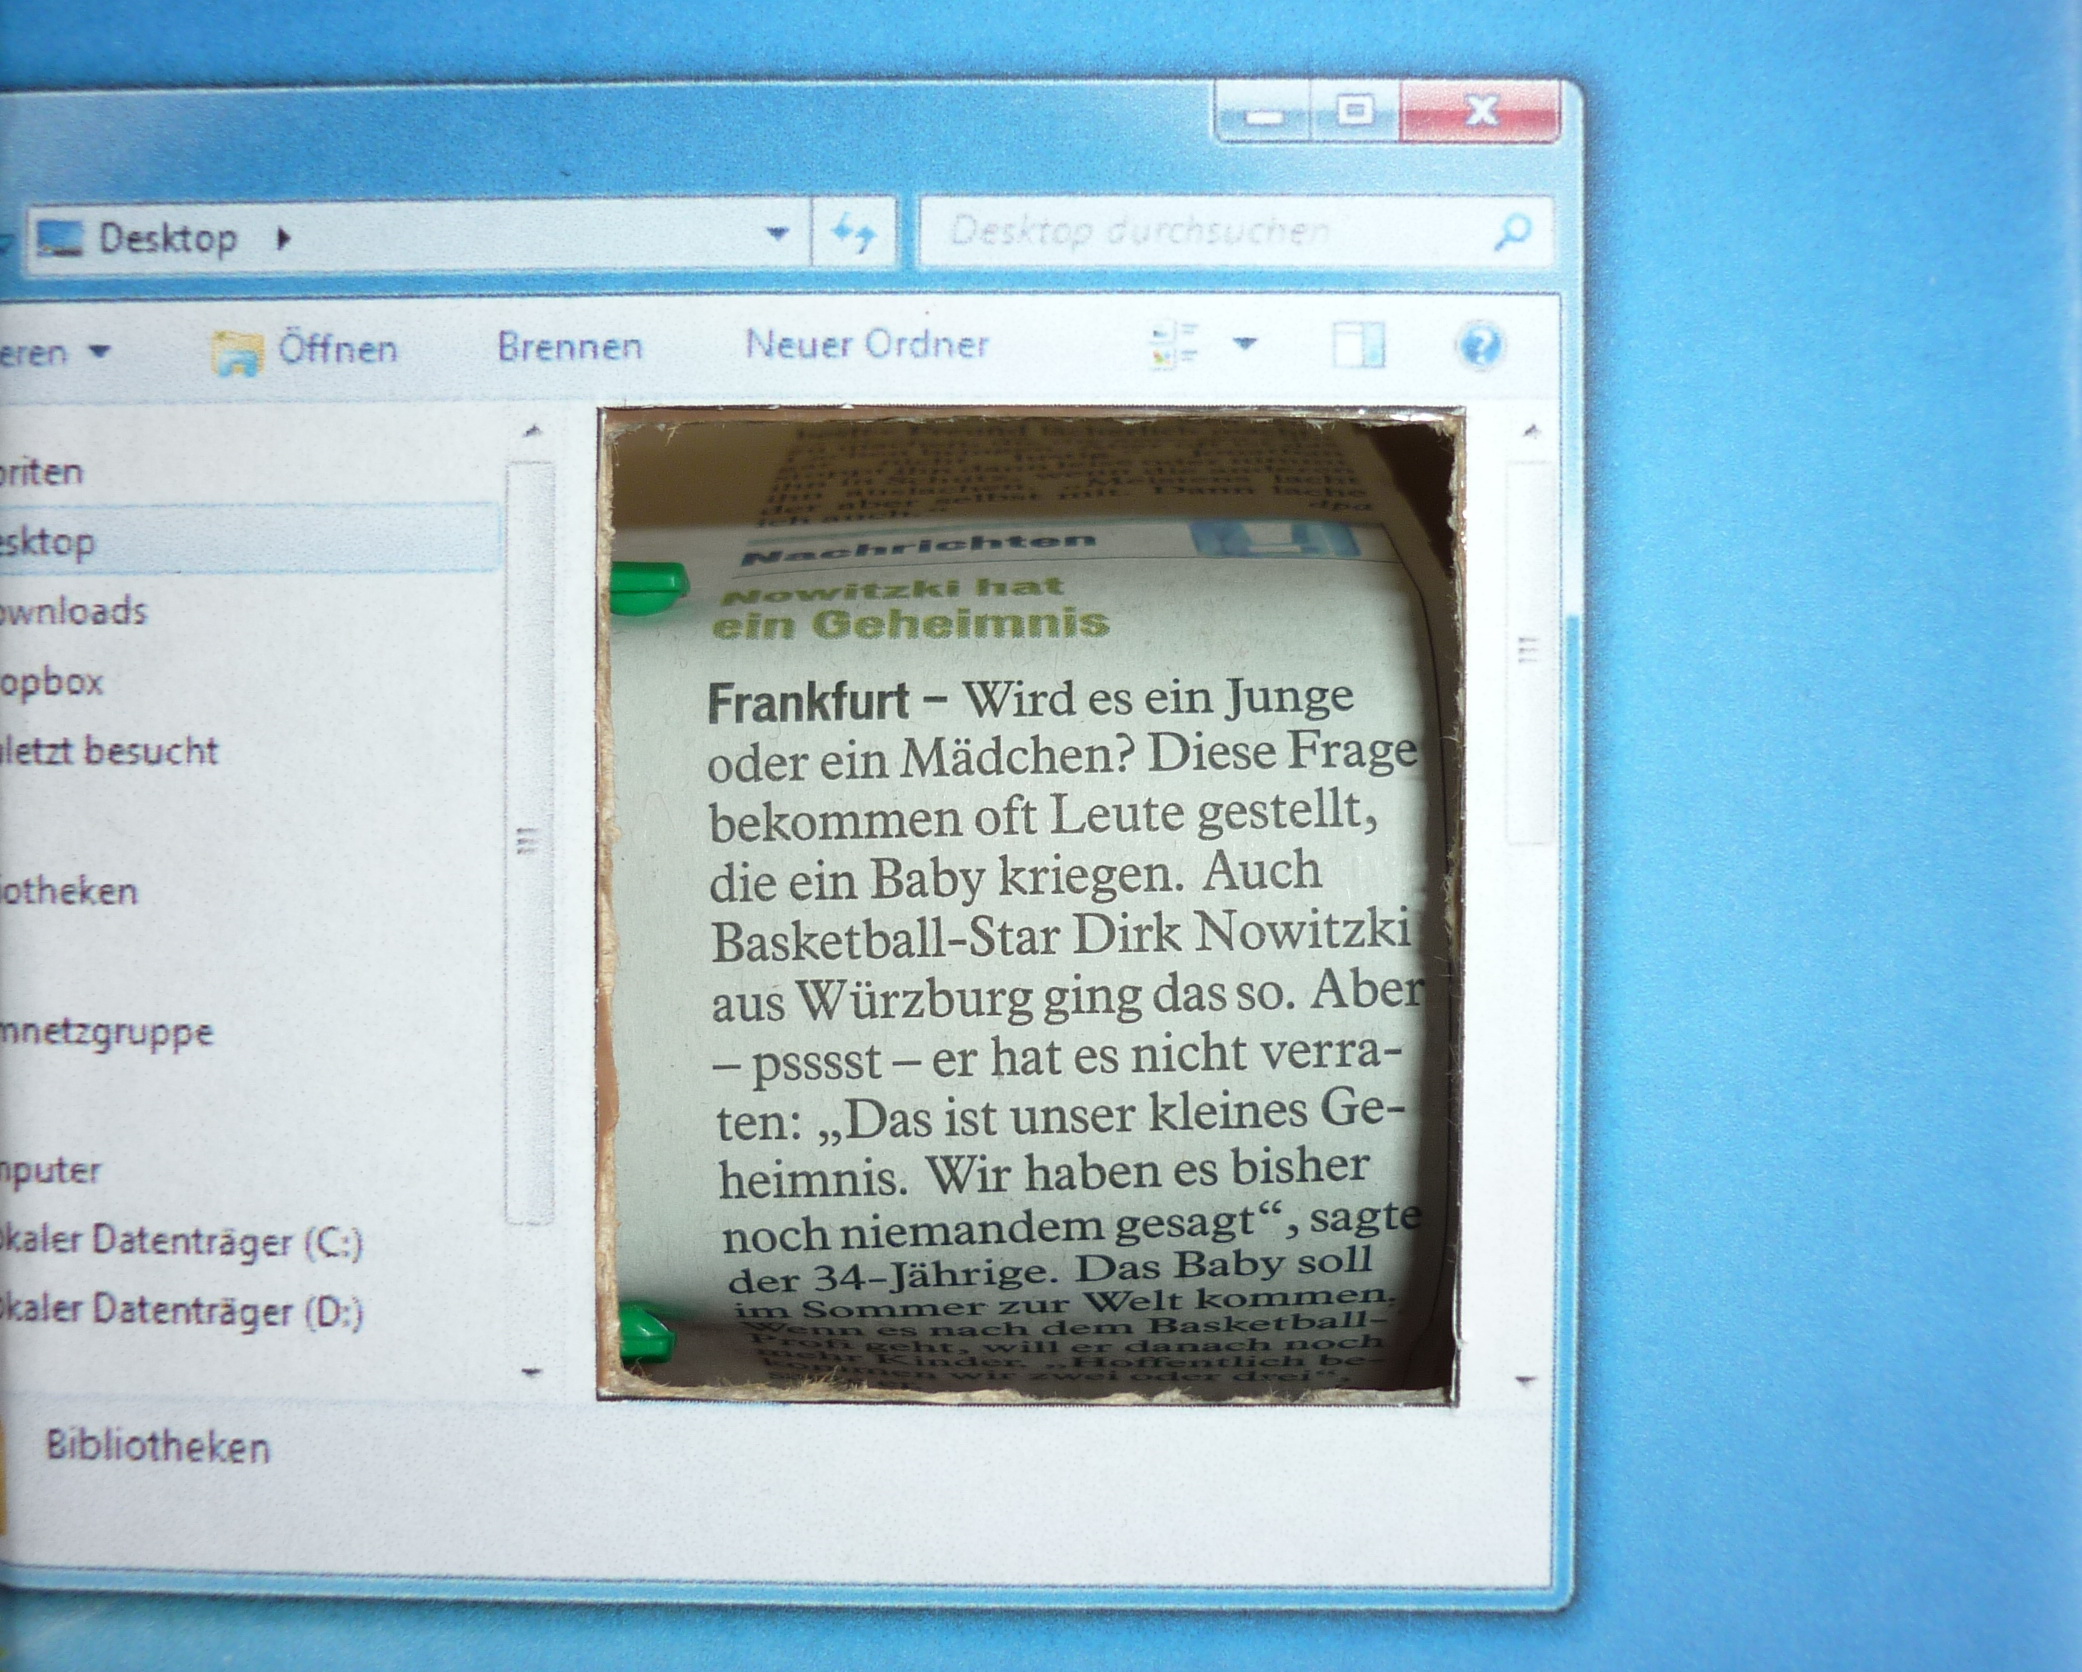 Desktop
Desktop durchsuchen
eren
Öffnen
Brennen
Neuer Ordner
oriten
esktop
ownloads
opbox
letzt besucht
iotheken
mnetzgruppe
mputer
okaler Datenträger (C:)
okaler Datenträger (D:)
Bibliotheken
ihn auslachen. „Meistens lacht
der aber selbst mit. Dann lache
ich auch.“ dpa
Nachrichten
Nowitzki hat
ein Geheimnis
Frankfurt – Wird es ein Junge
oder ein Mädchen? Diese Frage
bekommen oft Leute gestellt,
die ein Baby kriegen. Auch
Basketball-Star Dirk Nowitzki
aus Würzburg ging das so. Aber
– pssssst – er hat es nicht verra-
ten: „Das ist unser kleines Ge-
heimnis. Wir haben es bisher
noch niemandem gesagt“, sagte
der 34-Jährige. Das Baby soll
im Sommer zur Welt kommen.
Wenn es nach dem Basketball-
Profi geht, will er danach noch
mehr Kinder. „Hoffentlich be-
kommen wir zwei oder drei“,